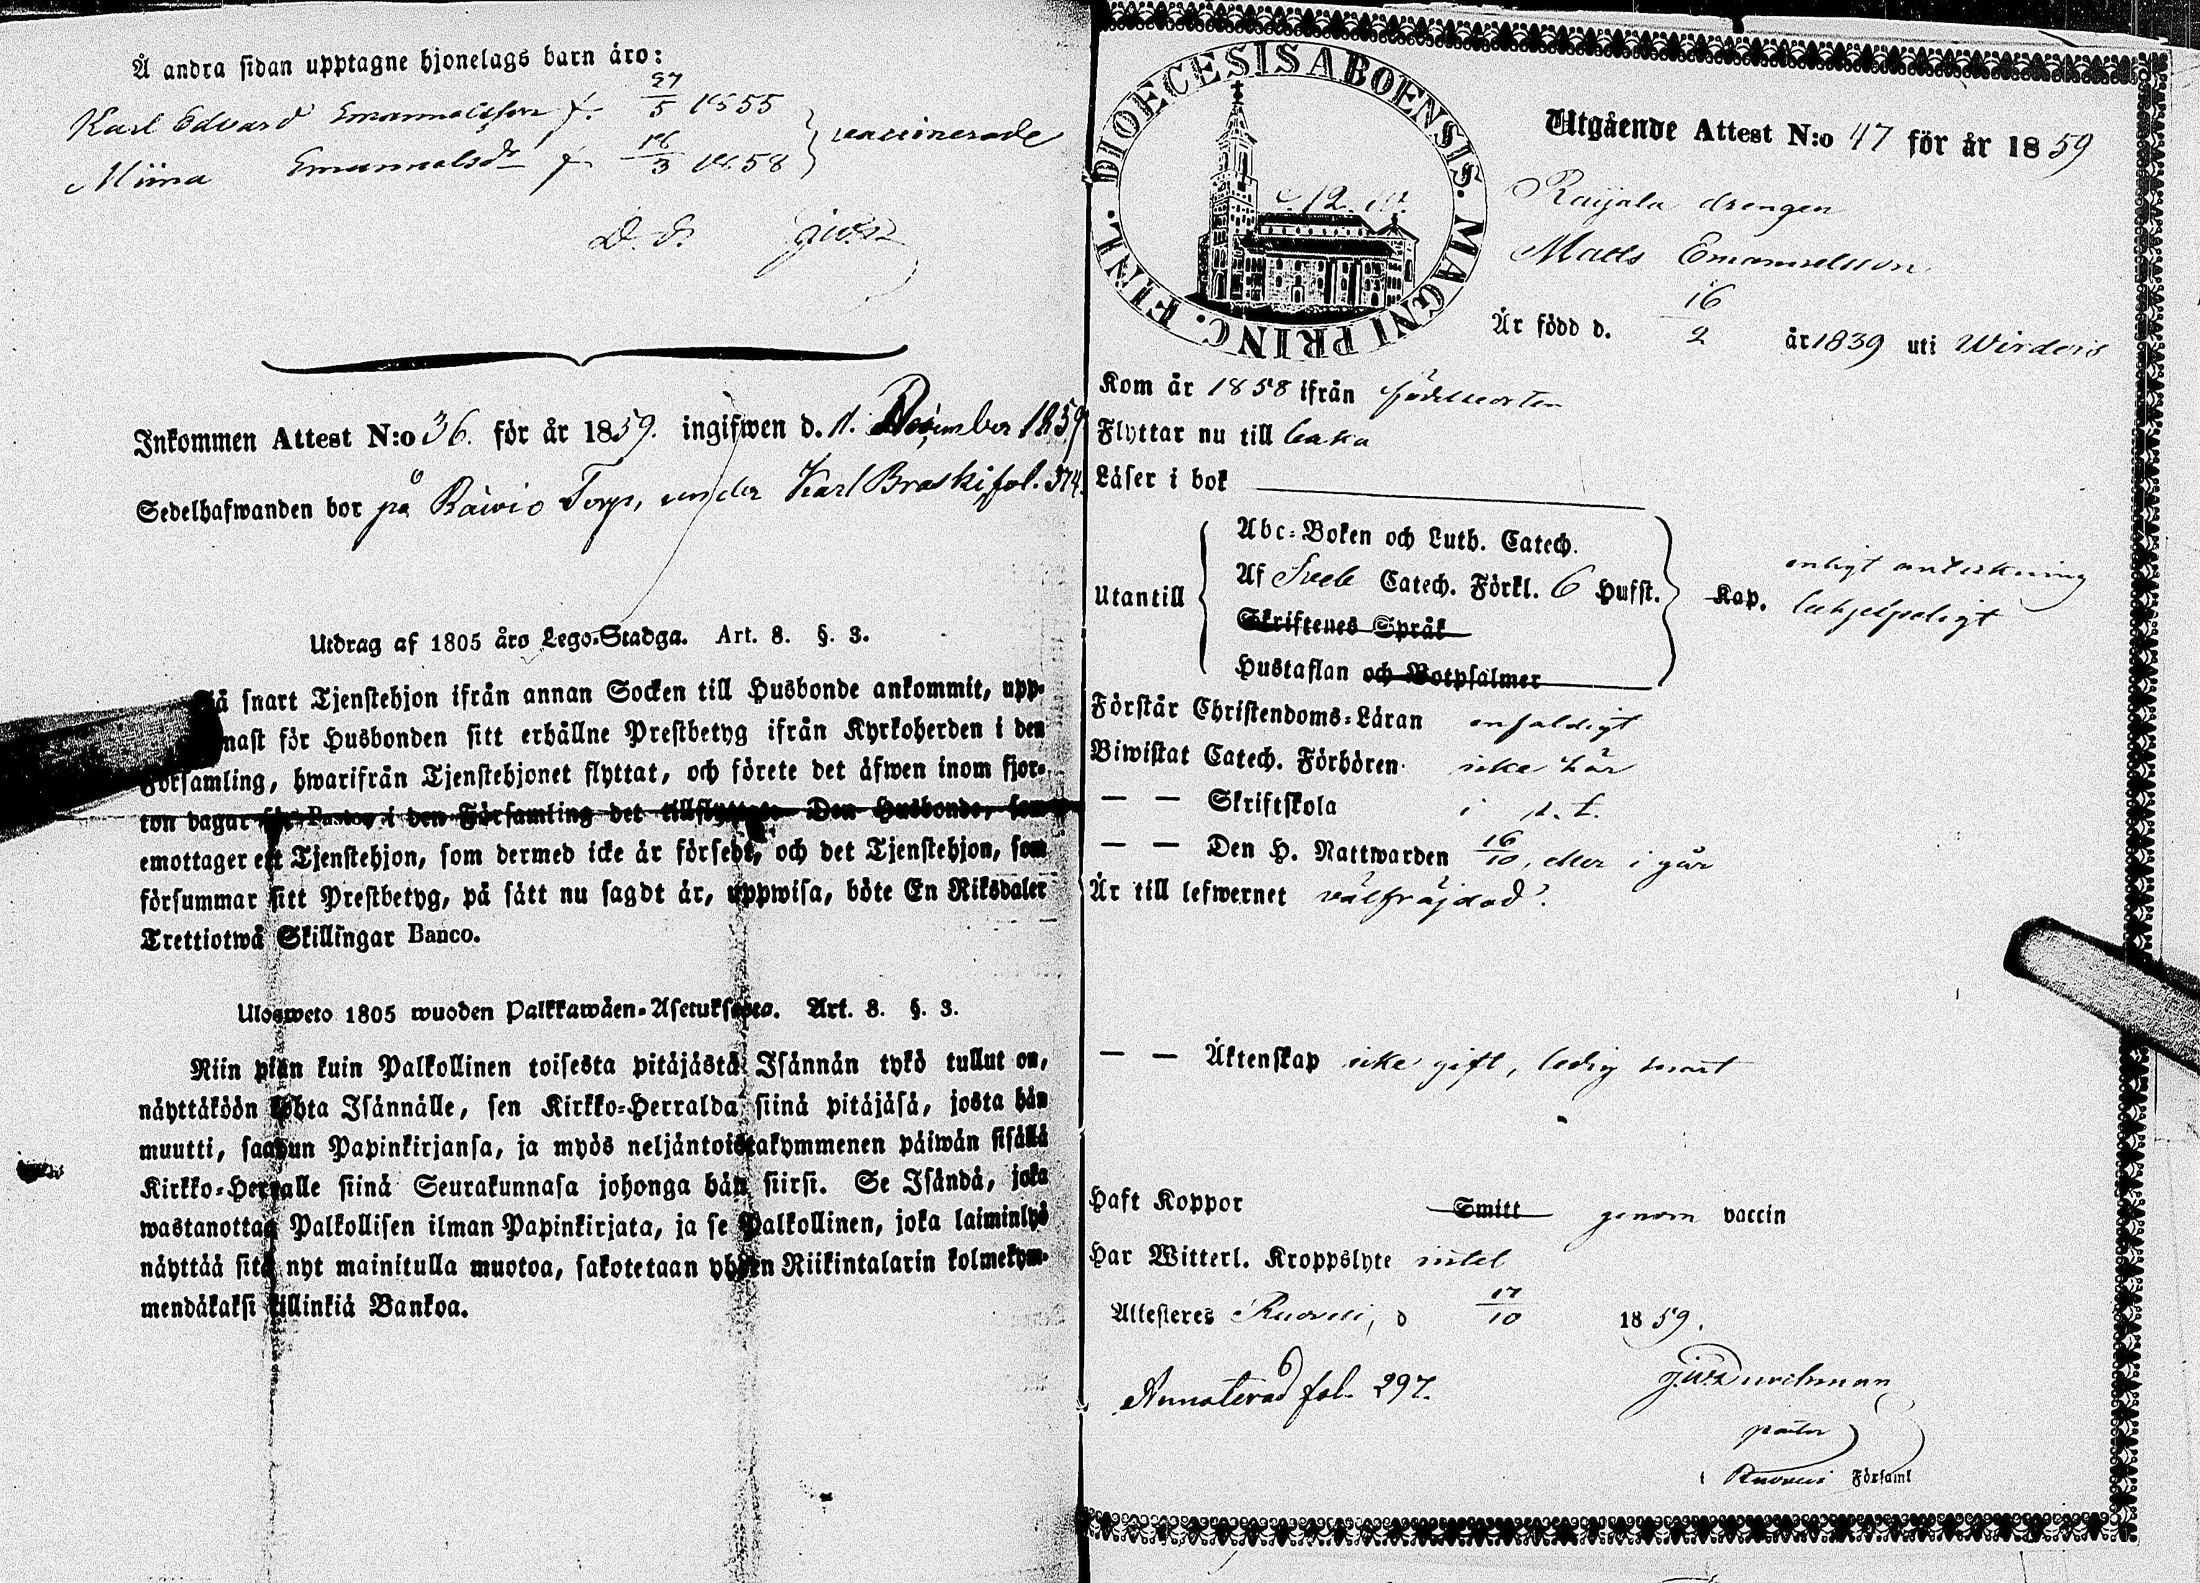 Å andra sidan upptagne hjonelags barn äro:
Karl Edvard Emanuelsson f. 27/5 1855
Miina Emanuelsdr f. 18/3 1858 } vaccinerade
D. S.
Inkommen Attest N:o 36. för år 1859. ingifwen d. 1. December 1859
Sedelhafwanden bor på Räwiö Torp, under Karl Braski, fol. 374.
Utdrag af 1805 års Lego-Stadga. Art. 8. §. 3.
Så snart Tjenstehjon ifrån annan Socken till Husbonde ankommit, upp-
nast för Husbonden sitt erhållne Prestbetyg ifrån Kyrkoherden i den
Församling, hwarifrån Tjenstehjonet flyttat, och förete det äfwen inom fjor-
ton dagar för Pastor i den Församling det tillflyttat. Den Husbonde, som
emottager ett Tjenstehjon, som dermed icke är försedt, och det Tjenstehjon, som
försummar sitt Prestbetyg, på sätt nu sagdt är, uppwisa, böte En Riksdaler
Trettiotwå Skillingar Banco.
Ulosweto 1805 wuoden Palkkawäen-Asetuksesta. Art. 8. §. 3.
Niin pian kuin Palkollinen toisesta pitäjästä Isännän tykö tullut on,
näyttäköön kohta Isännälle, sen Kirkko-Herralda siinä pitäjäsä, josta hän
muutti, saadun Papinkirjansa, ja myös neljäntoistakymmenen päiwän sisällä
Kirkko-Herralle siinä Seurakunnasa johonga hän siirsi. Se Isändä, joka
wastanottaa Palkollisen ilman Papinkirjata, ja se Palkollinen, joka laiminlyö
näyttää sitä nyt mainitulla muotoa, sakotetaan yhden Riikintalarin kolmekym-
mendäkaksi killinkiä Bankoa.
DIOECESIS ABOENSIS. MAGNI PRINC. FINL.
Utgående Attest N:o 47 för år 1859
Raijala drengen
Matts Emanuelsson
Är född d. 16/2 år 1839 uti Wirdois
Kom år 1858 ifrån födelseorten
Flyttar nu till baka
Läser i bok
Utantill
Abc-Boken och Luth. Catech.
Af Sveb. Catech. Förkl. 6 Hufst.
Skriftenes Språk
Hustaflan och Botpsalmer
Kap. enligt anteckning
behjelpeligt
Förstår Christendoms-Läran enfaldigt
Biwistat Catech. Förhören icke här
— — Skriftskola i p. t.
— — Den H. Nattwarden 16/10, eller i går
Är till lefwernet välfräjdad.
— — Äktenskap icke gift, ledig snart
Haft Koppor Smitt genom vaccin
Har Witterl. Kroppslyte intet
Attesteres Ruovesi, d 17/10 1859.
Annoterad fol. 297.
J. W. Durchman
pastor
i Ruovesi Församl